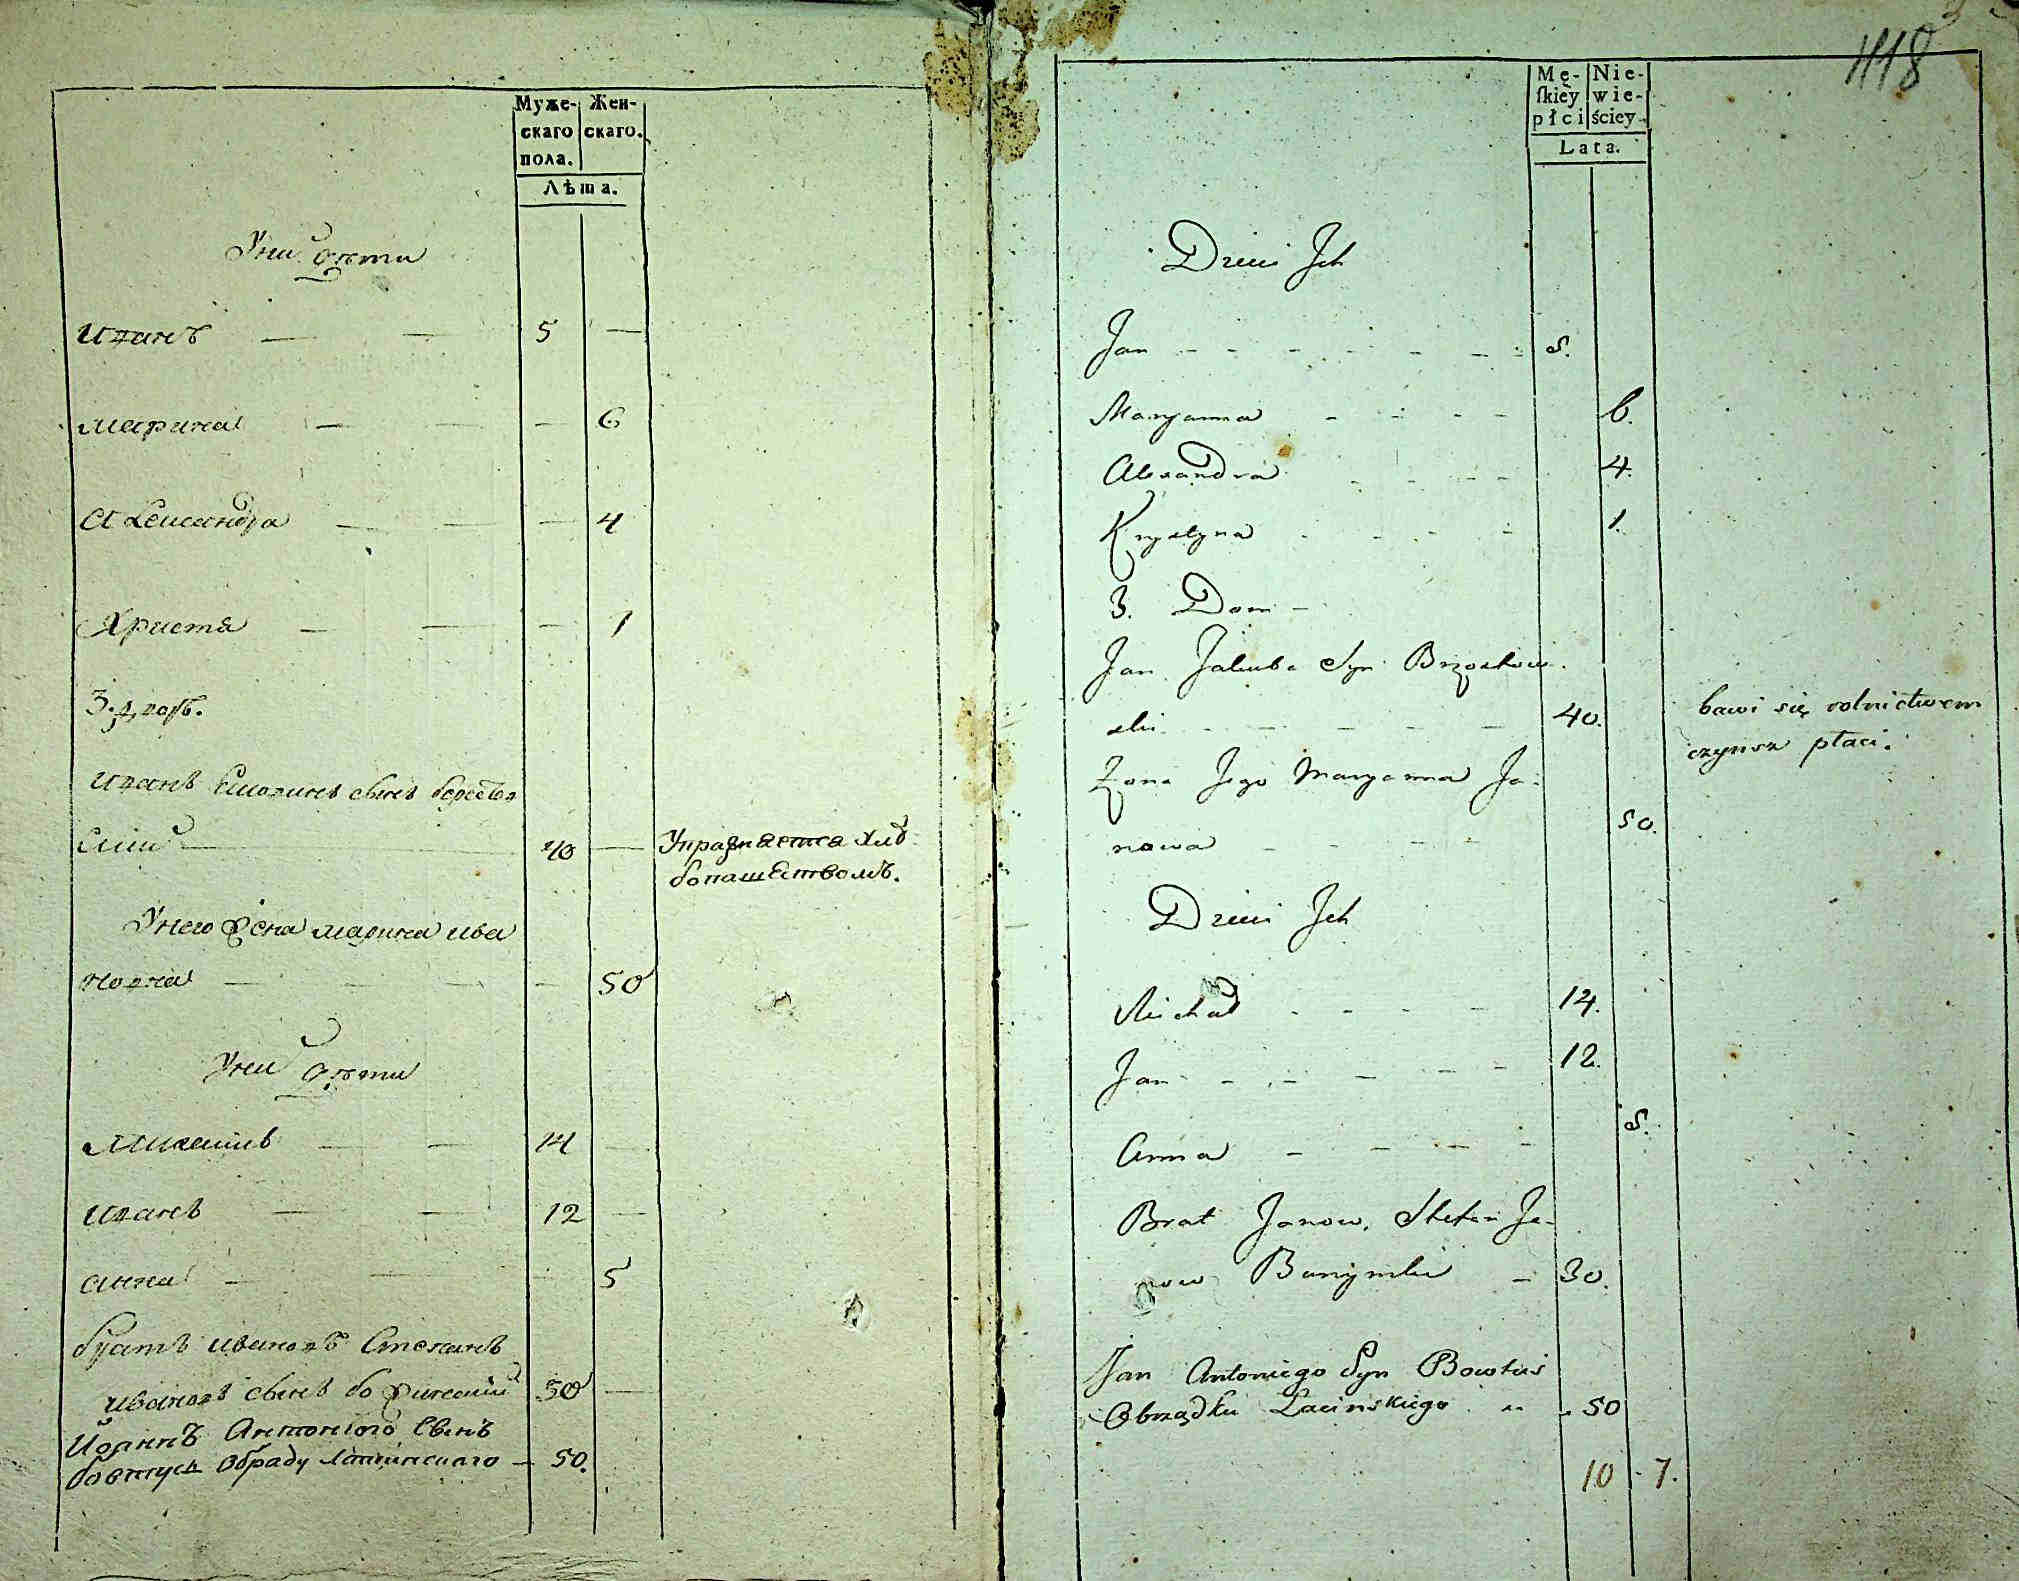 Муже-
скаго
пола.
Жен-
скаго.
Лѣта.
У ни дѣти
Иванъ — — 5 —
Марина — — 6
Александра — — — 4
Христя — — — 1
3. дворъ.
Иванъ сынъ
скій — 40 — Упражняется хлѣ
бопашествомъ.
У него жена Марина Ива
новна — — — — 50
У ни дѣти
Михаилъ — — 14 —
Иванъ — — 12 —
Анна — — — 5
братъ Ивановъ Степанъ
Ивановъ сынъ 30 —
Иоаннъ Антоніого Сынъ
бовтусь Обраду Латинскаго — 50.
418
Mę-
ſkiey
płci
Nie-
wie-
ściey
Lata.
Dzieci Ich
Jan - - - - - - - 5.
Maryanna - - - - 6.
Alexandra - - - - 4.
Krystyna - - - - 1.
3. Dom -
Jan Jakuba Syn Brzostow
ski - - - - - 40. bawi się rolnictwem
czynsz płaci.
Żona Jego Maryanna Ja-
nowa - - - - 50.
Dzieci Ich
Michał - - - - 14.
Jan - - - - - 12.
Anna - - - - 5.
Brat Janow. Stefan Ja-
now - 30.
Jan Antoniego Syn Bowtuś
Obrządku Łacińskiego " - 50
10 - 7.